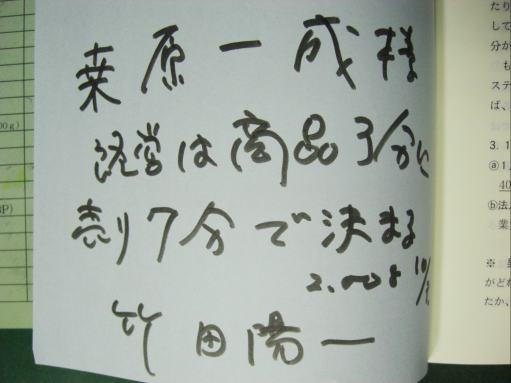 桒原一成様
経営は商品3分に
売り7分で決まる
竹田陽一
たり
して
分か
も
ステ
ば、
3. 1
ⓐ1
40
ⓑ法
業
※
がどれ
たか、